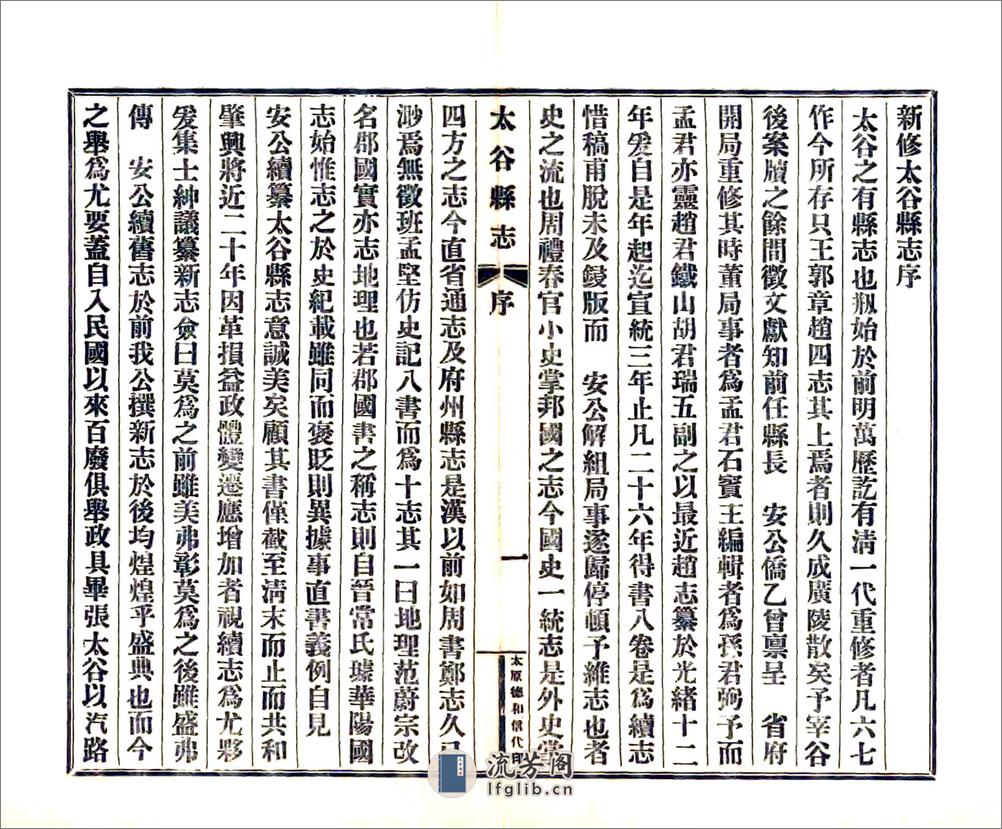 新修太谷縣志序
太谷之有縣志也刱始於前明萬歷訖有淸一代重修者凡六七
作今所存只王郭章趙四志其上焉者則久成廣陵散矣予宰谷
後案牘之餘間徵文獻知前任縣長　安公僑乙曾禀呈　省府
開局重修其時董局事者爲孟君石賓王編輯者爲孫君弼予而
孟君亦靈趙君鐵山胡君瑞五副之以最近趙志纂於光緒十二
年爰自是年起迄宣統三年止凡二十六年得書八卷是爲續志
惜稿甫脫未及鋟版而　安公解組局事遂歸停頓予維志也者
史之流也周禮春官小史掌邦國之志今國史一統志是外史掌
太谷縣志　序　一　太原德和信代印
四方之志今直省通志及府州縣志是漢以前如周書鄭志久已
渺焉無徵班孟堅仿史記八書而爲十志其一曰地理范蔚宗改
名郡國實亦志地理也若郡國書之稱志則自晉常氏璩華陽國
志始惟志之於史紀載雖同而褒貶則異據事直書義例自見
安公續纂太谷縣志意誠美矣顧其書僅截至淸末而止而共和
肇興將近二十年因革損益政體變遷應增加者視續志爲尤夥
爰集士紳議纂新志僉曰莫爲之前雖美弗彰莫爲之後雖盛弗
傳　安公續舊志於前我公撰新志於後均煌煌乎盛典也而今
之舉爲尤要蓋自入民國以來百廢俱舉政具畢張太谷以汽路
流芳阁
lfglib.cn